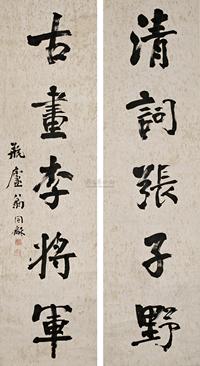 清詞張子野
古畫李將軍
瓶廬翁同龢